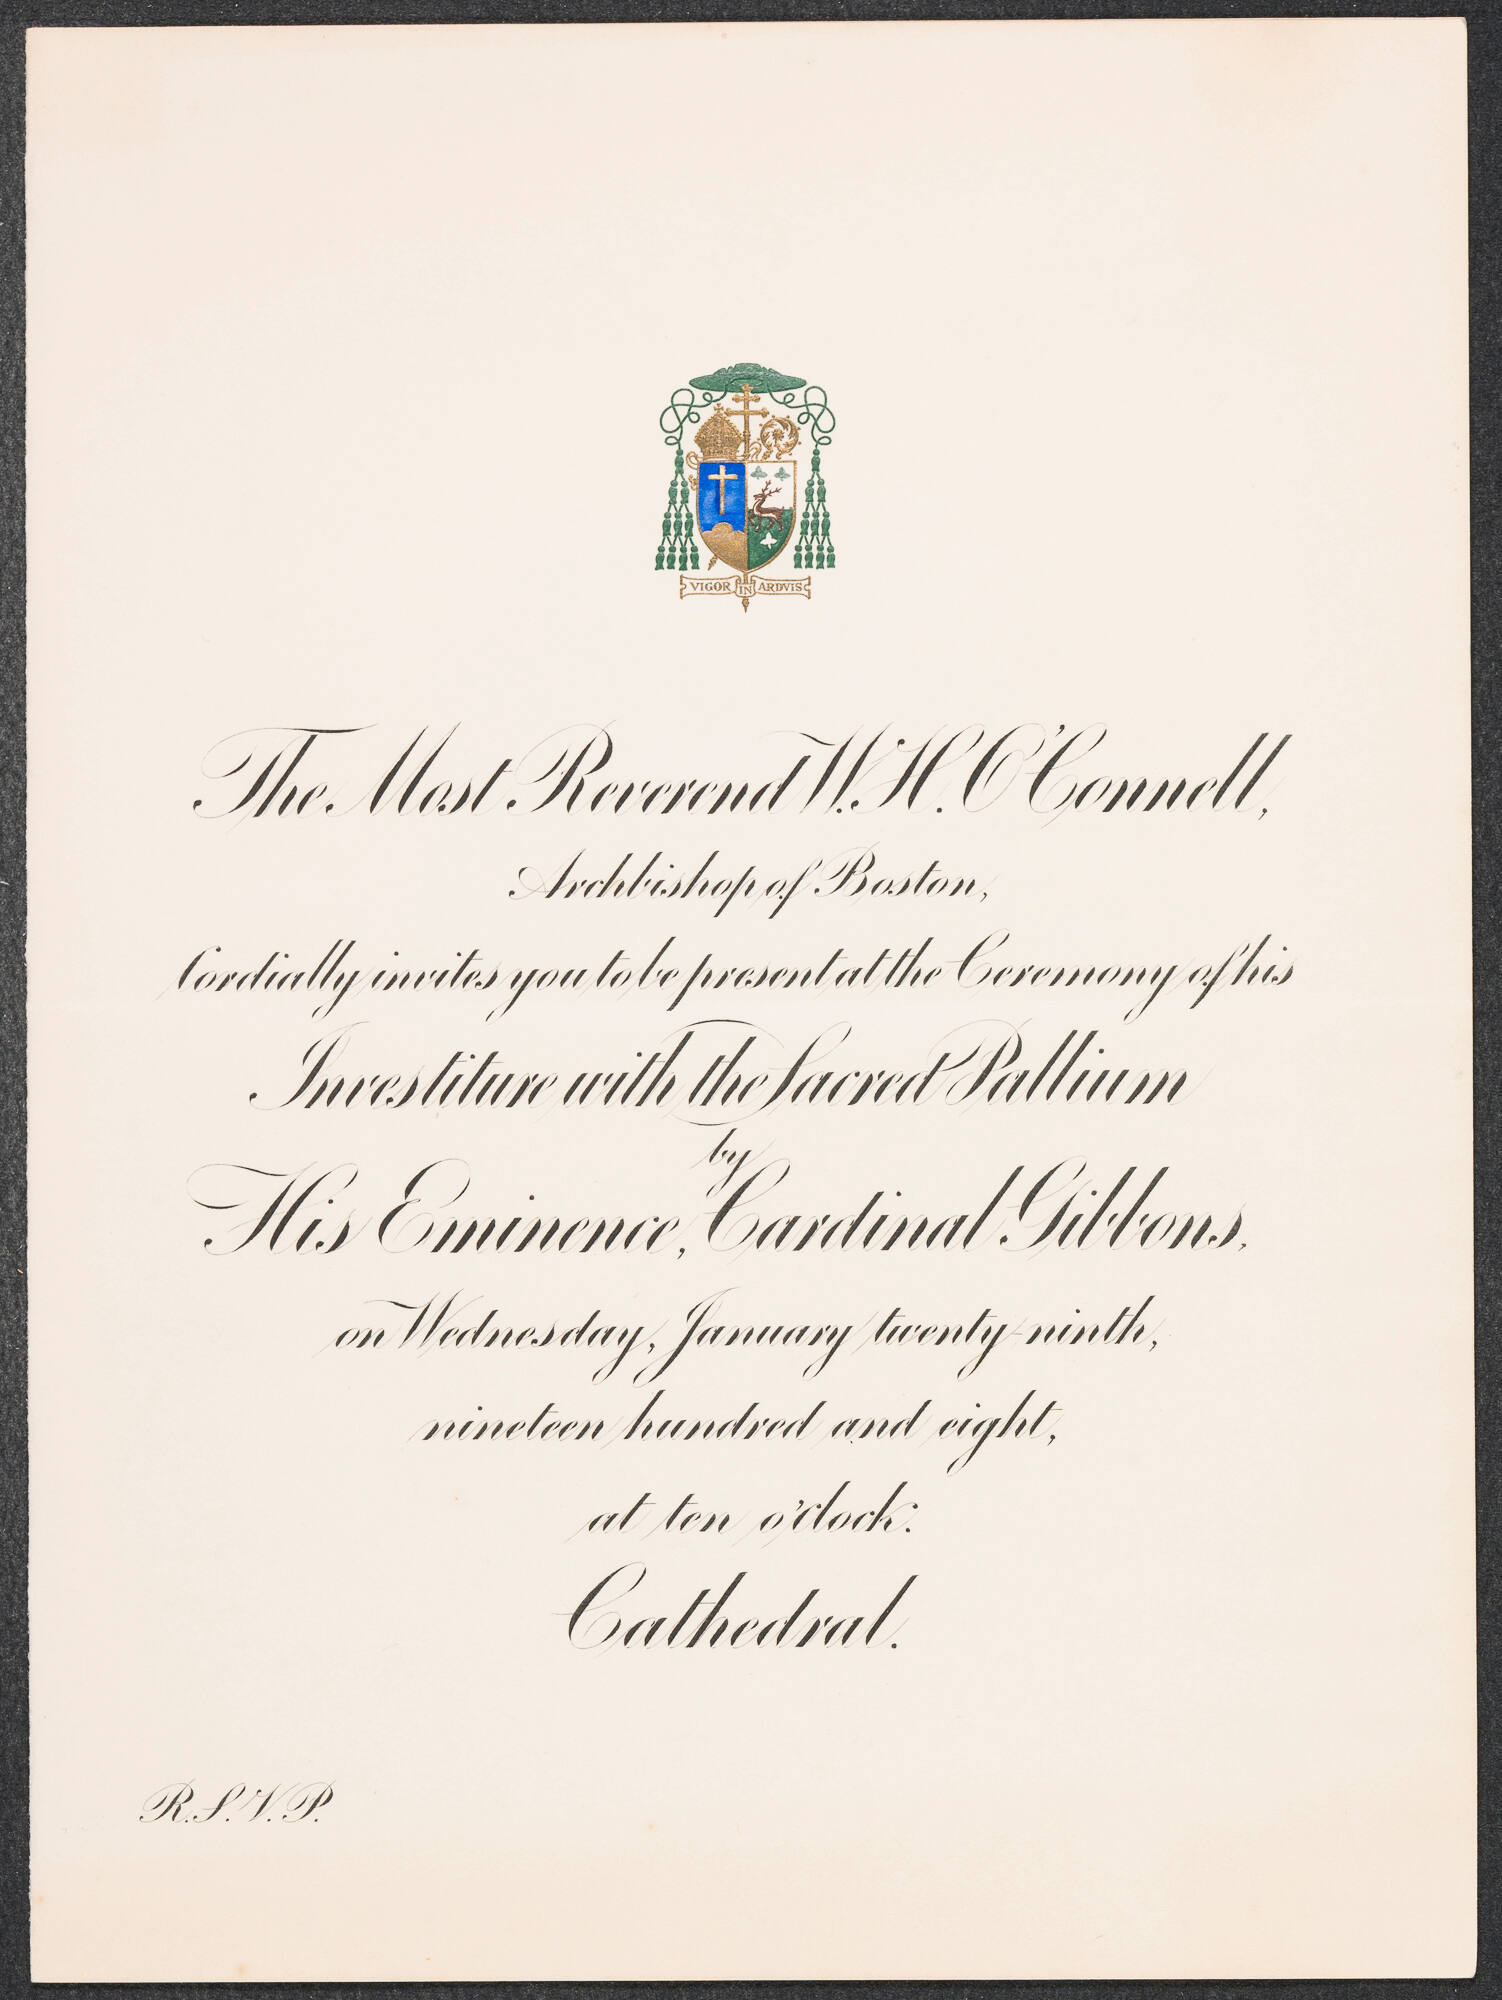 VIGOR IN ARDVIS
The Most Reverend W. H. O'Connell,
Archbishop of Boston,
Cordially invites you to be present at the Ceremony of his
Investiture with the Sacred Pallium
by
His Eminence, Cardinal Gibbons,
on Wednesday, January twenty-ninth,
nineteen hundred and eight,
at ten o'clock.
Cathedral.
R.S.V.P.